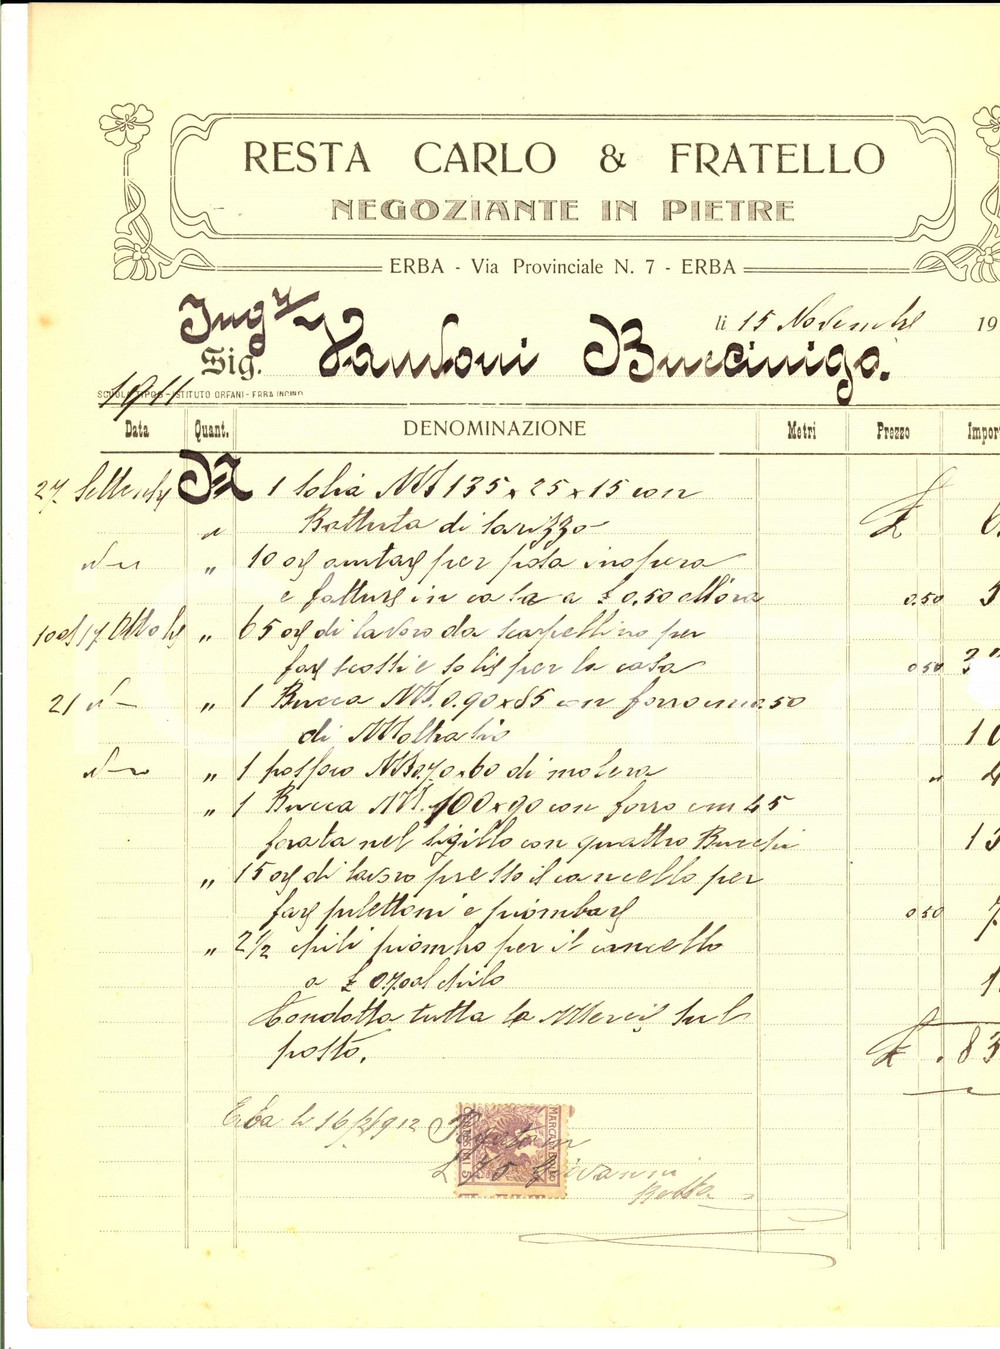 RESTA CARLO & FRATELLO
NEGOZIANTE IN PIETRE
ERBA - Via Provinciale N. 7 - ERBA
li 15 Novembre 19
Ing.r
Sig. Vantoni Buccinigo.
1911
SCUOLA TIPOG - ISTITUTO ORFANI - ERBA INCINO
Data Quant. DENOMINAZIONE Metri Prezzo Impor
27 Settembre N 1 Solia M 135 x 25 x 15 con
" Battuta di Sarizzo £ 6.
" 10 ore per posa in opera
e fatture in casa a £ 0.50 all'ora 0.50 5
17 Ottobre " 65 ore di lavoro da scarpellino per
fare e solie per la casa 0 50 3
21 " 1 Bucca M. 0.90 x 85 con forro cm 50
di Moltrasio 10
" 1 M 0.70 x 60 di molera " 4
" 1 Bucca M. 100 x 90 con forro cm 45
forata nel sigillo con quattro Bucchi 13
" 15 ore di lavoro presso il cancello per
fare e piombare 0 50 7
" 2 1/2 chili piombo per il cancello
a £ 0.70 al chilo 1.
Condotta tutta la Merce sul
posto. £ . 83
Erba li 16/2/912
MARCA DA BOLLO
CENTESIMI 5
Giovanni
Resta